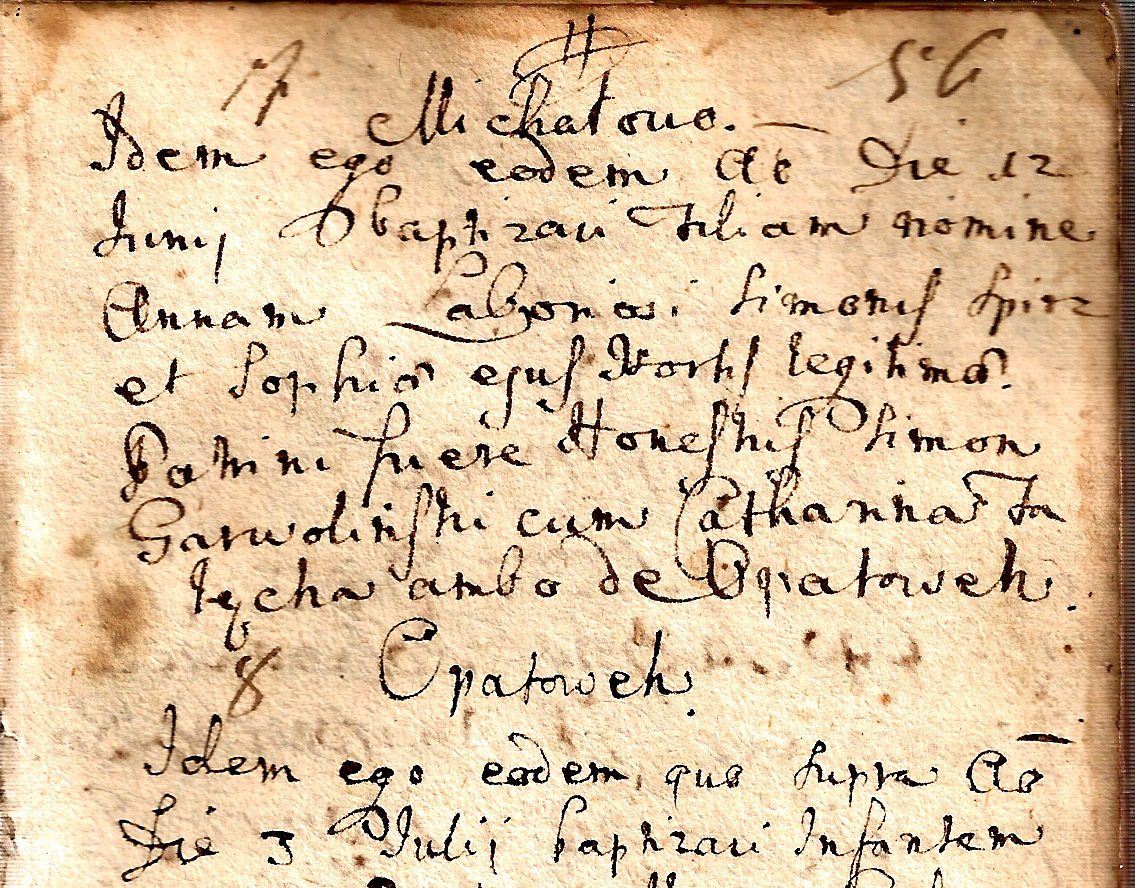 7 56
Michałowo.
Idem ego eodem Aō Die 12
Junij baptizavi Filiam nomine
Annam Laboriosi Simonis Spirz
et Sophiæ ejus Uxoris legitimæ.
Patrini fuere Honestus Simon
Garwolinski cum Catharina
ambo de Opatowek.
8 Opatowek.
Idem ego eodem quo supra Aō
Die 3 Julij baptizavi Infantem